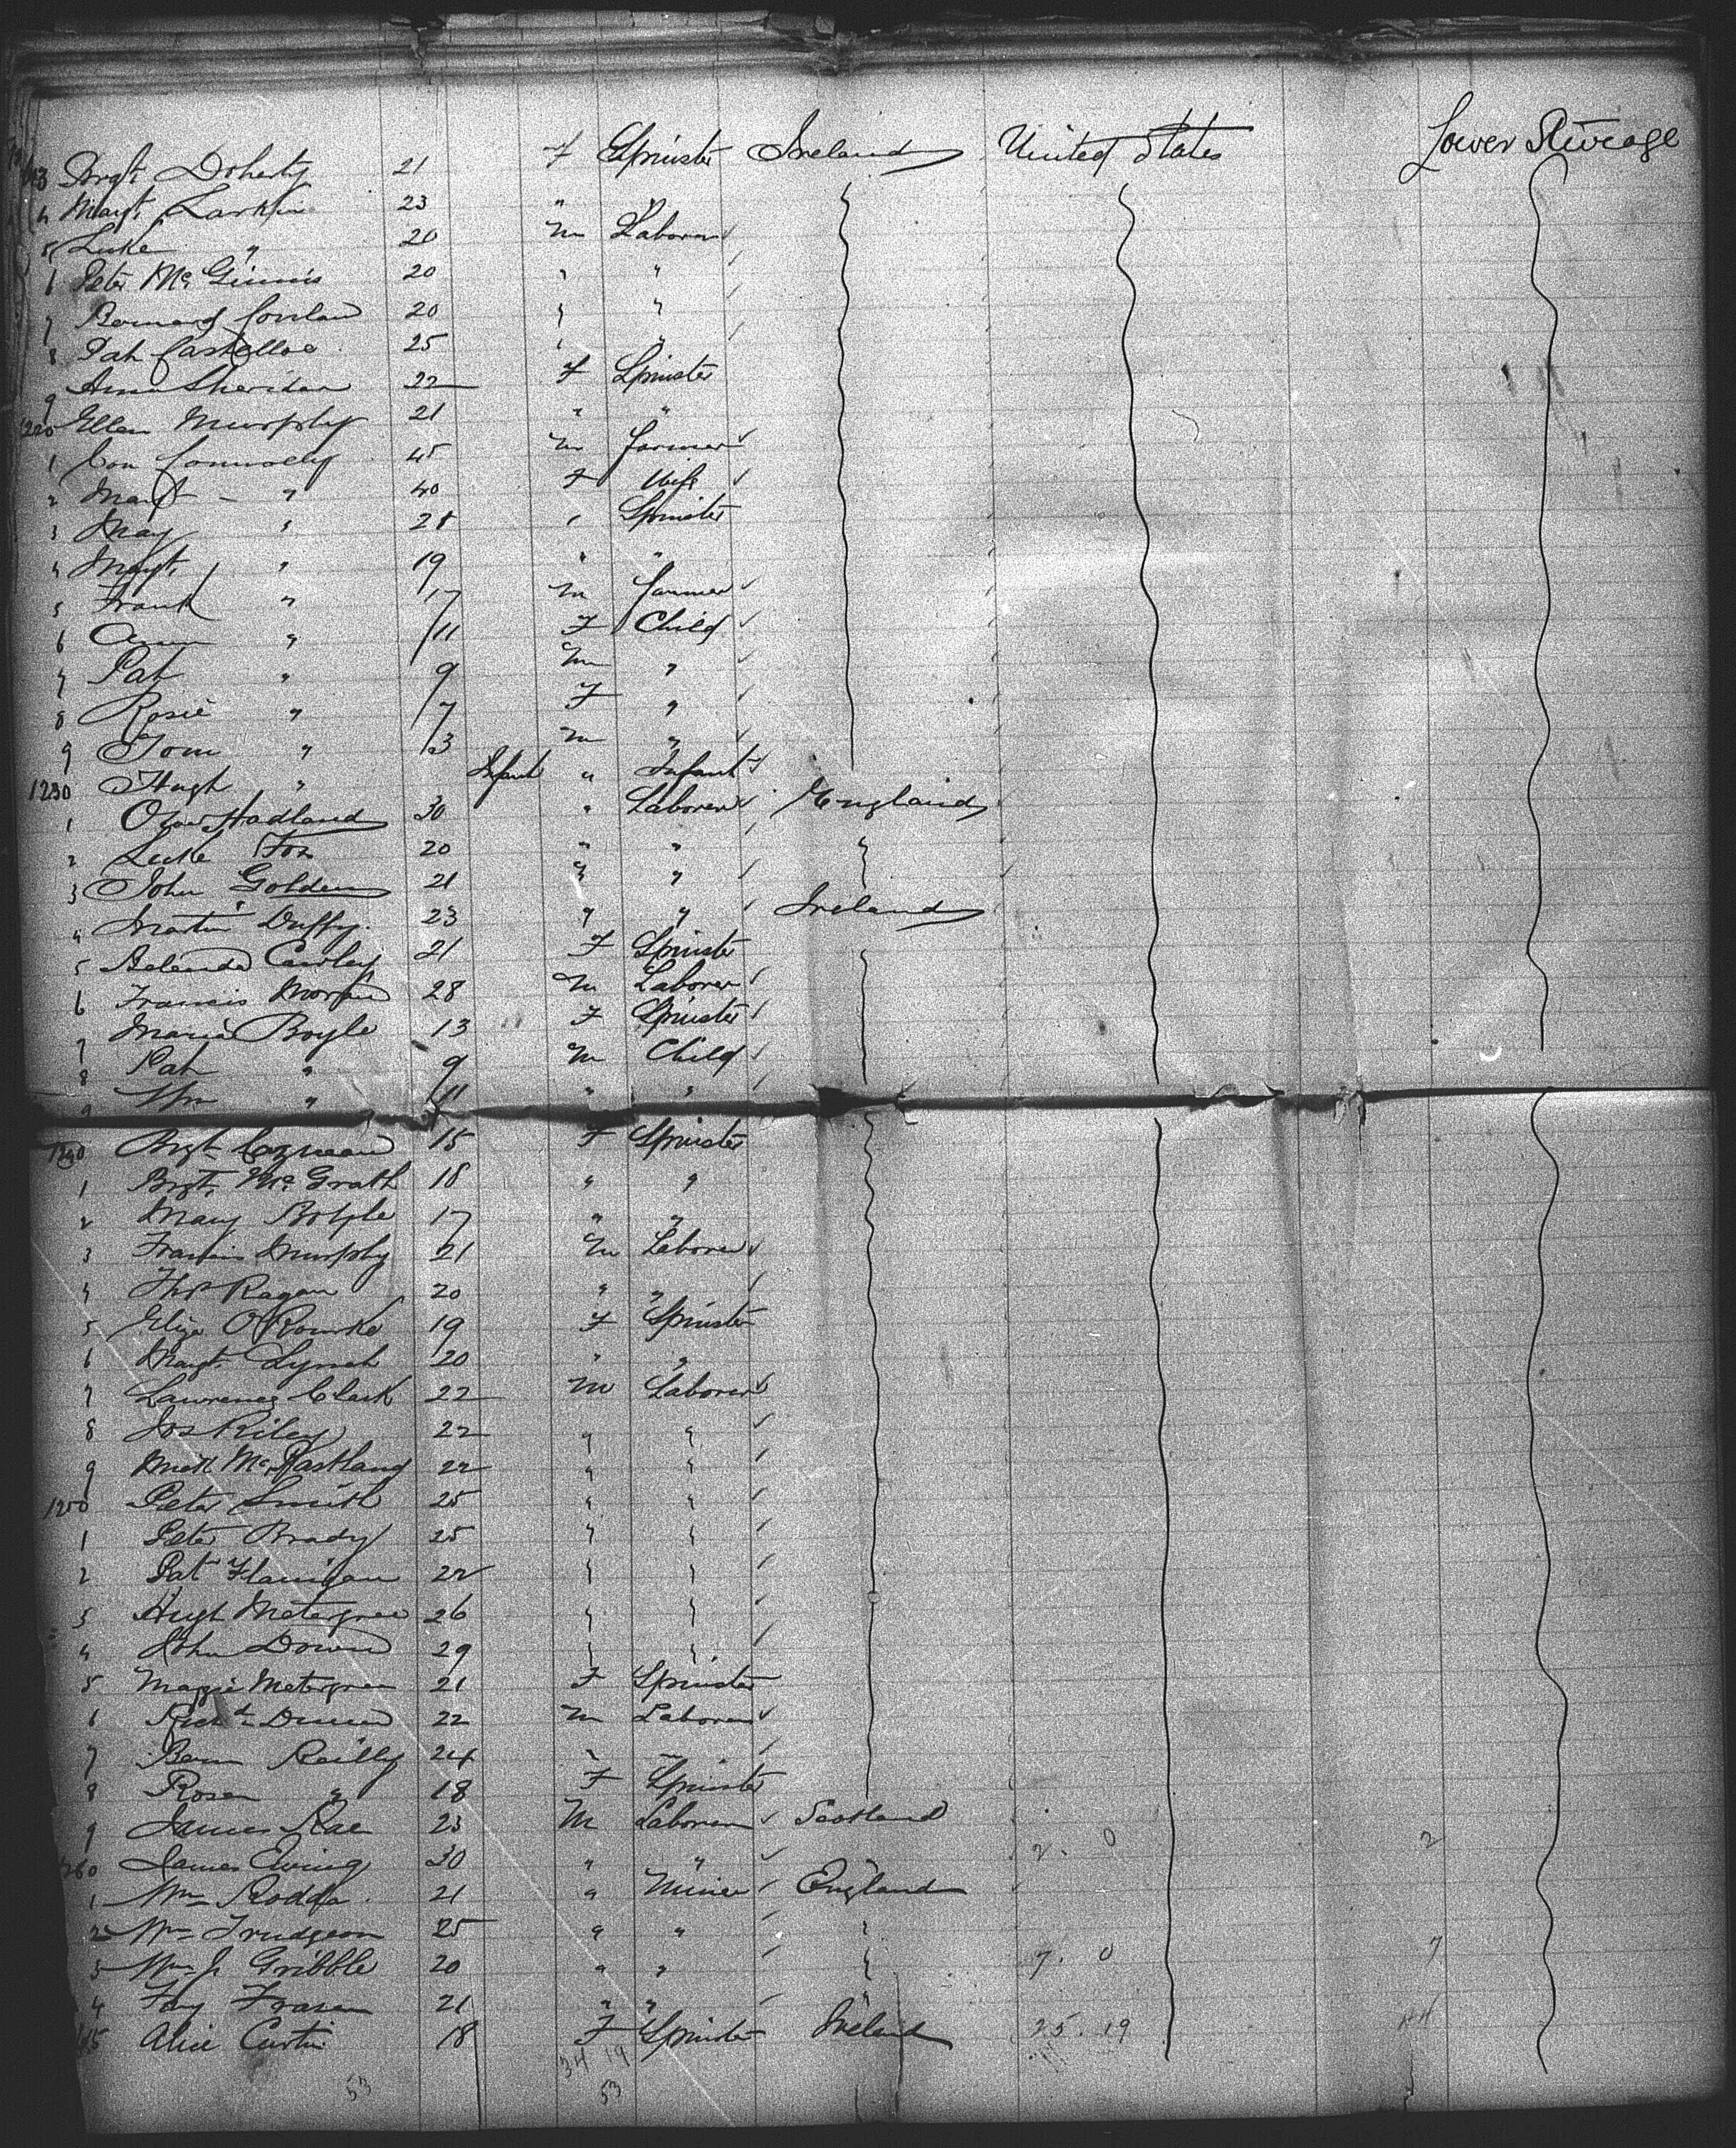 Brgt. Doherty 21 F Spinster Ireland United States Lower Steerage
4 Margt. Larkin 23 " "
5 Luke " 20 m Laborer
6 Peter McGinnis 20 " "
7 Bernard Conlan 20 " "
8 Pat Castelloe 25 " "
9 Ann Sheridan 22 F Spinster
Ellen Murphy 21 " "
1 Con Connolly 45 m farmer
2 Margt " 40 F Wife
3 May " 28 " Spinster
4 Margt. " 19 " "
5 Frank " 17 m farmer
6 Ann " 11 F Child
7 Pat " 9 m "
8 Rosie " 7 F "
9 Tom " 3 m "
1230 Hugh " Infant " Infant
1 Hadland 30 " Laborer England
2 Luke Fox 20 " "
3 John Golden 21 " "
4 Martin Duffy. 23 " " Ireland
5 Cawley 21 F Spinster
6 Francis Moran 28 m Laborer
7 Maria Boyle 13 F Spinster
8 Pat " 9 m Child
9 Wm " 11 " "
1240 Brgt. 15 F Spinster
1 Brgt. McGrath 18 " "
2 Mary Boyle 17 " "
3 Francis Murphy 21 m Laborer
4 Thos Ragan 20 " "
5 Eliza O'Rourke 19 F Spinster
6 Margt. Lynch 20 " "
7 Lawrence Clark 22 m Laborer
8 Jos Riley 22 " "
9 Mick McPartland 22 " "
1250 Peter Smith 25 " "
1 Peter Brady 25 " "
2 Pat Flanigan 22 " "
3 Hugh Metergree 26 " "
4 John Down 29 " "
5 Maggie Metergree 21 F Spinster
6 Richd. 22 m Laborer
7 Bern Reilly 24 " "
8 Rosan " 18 F Spinster
9 James Rae 23 M Laborer Scotland
1260 James Ewing 30 " " 2. 0 2
1 Wm Rodda. 21 " Miner England
2 Wm Trudgeon 25 " " "
3 Wm J. Gribble 20 " " " 7. 0 7
4 Frasen 21 " " "
5 Alice Curtin 18 F Spinster Ireland 25. 19 44
34 19
53 53